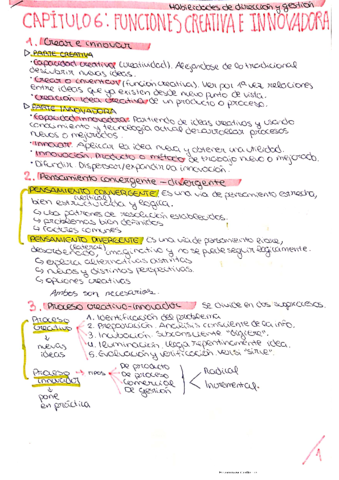 Habilidades de dirección y gestión
CAPÍTULO 6: FUNCIONES CREATIVA E INNOVADORA
1. Crear e innovar
▷ PARTE CREATIVA
• Capacidad creativa (creatividad). Alejándose de lo tradicional
descubrir nuevas ideas.
• Crear o inventar (función creativa). Ver por 1ª vez relaciones
entre ideas que ya existen desde nuevo punto de vista.
• Creación idea creativa de un producto o proceso.
▷ PARTE INNOVADORA
• Capacidad innovadora. Partiendo de ideas creativas y usando
conocimiento y tecnología actual desarrollar procesos
nuevos o mejorados.
• Innovar. Aplicar la idea nueva y obtener una utilidad.
• Innovación. Producto o método de trabajo nuevo o mejorado.
• Difundir. Dispersión/expandir la innovación.
2. Pensamiento convergente - divergente
PENSAMIENTO CONVERGENTE. Es una vía de pensamiento estrecho,
(vertical)
bien estructurada y lógica.
↪ usa patrones de resolución establecidos.
↪ problemas bien definidos
↪ factores comunes
PENSAMIENTO DIVERGENTE. Es una vía de pensamiento
(lateral)
desordenado, imaginativo y no se puede seguir lógicamente.
↪ explora alternativas distintas
↪ nuevas y distintas perspectivas.
↪ opciones creativas
Ambos son necesarios.
3. Proceso creativo-innovador
Se divide en dos subprocesos.
Proceso creativo
↓
nuevas ideas
1. Identificación del problema
2. Preparación. Análisis consciente de la info.
3. Incubación. Subconsciente "digiere".
4. Iluminación. Llega repentinamente idea.
5. Evaluación y verificación. Ver si "sirve".
Proceso innovador
↓
pone en práctica
→ TIPOS
De producto
De proceso
Comercial
De gestión
Radical
Incremental.
1